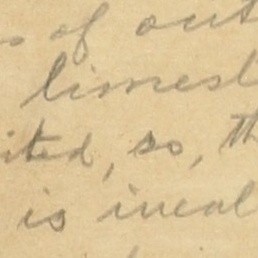 s of out
limest
ited, so, th
is incal